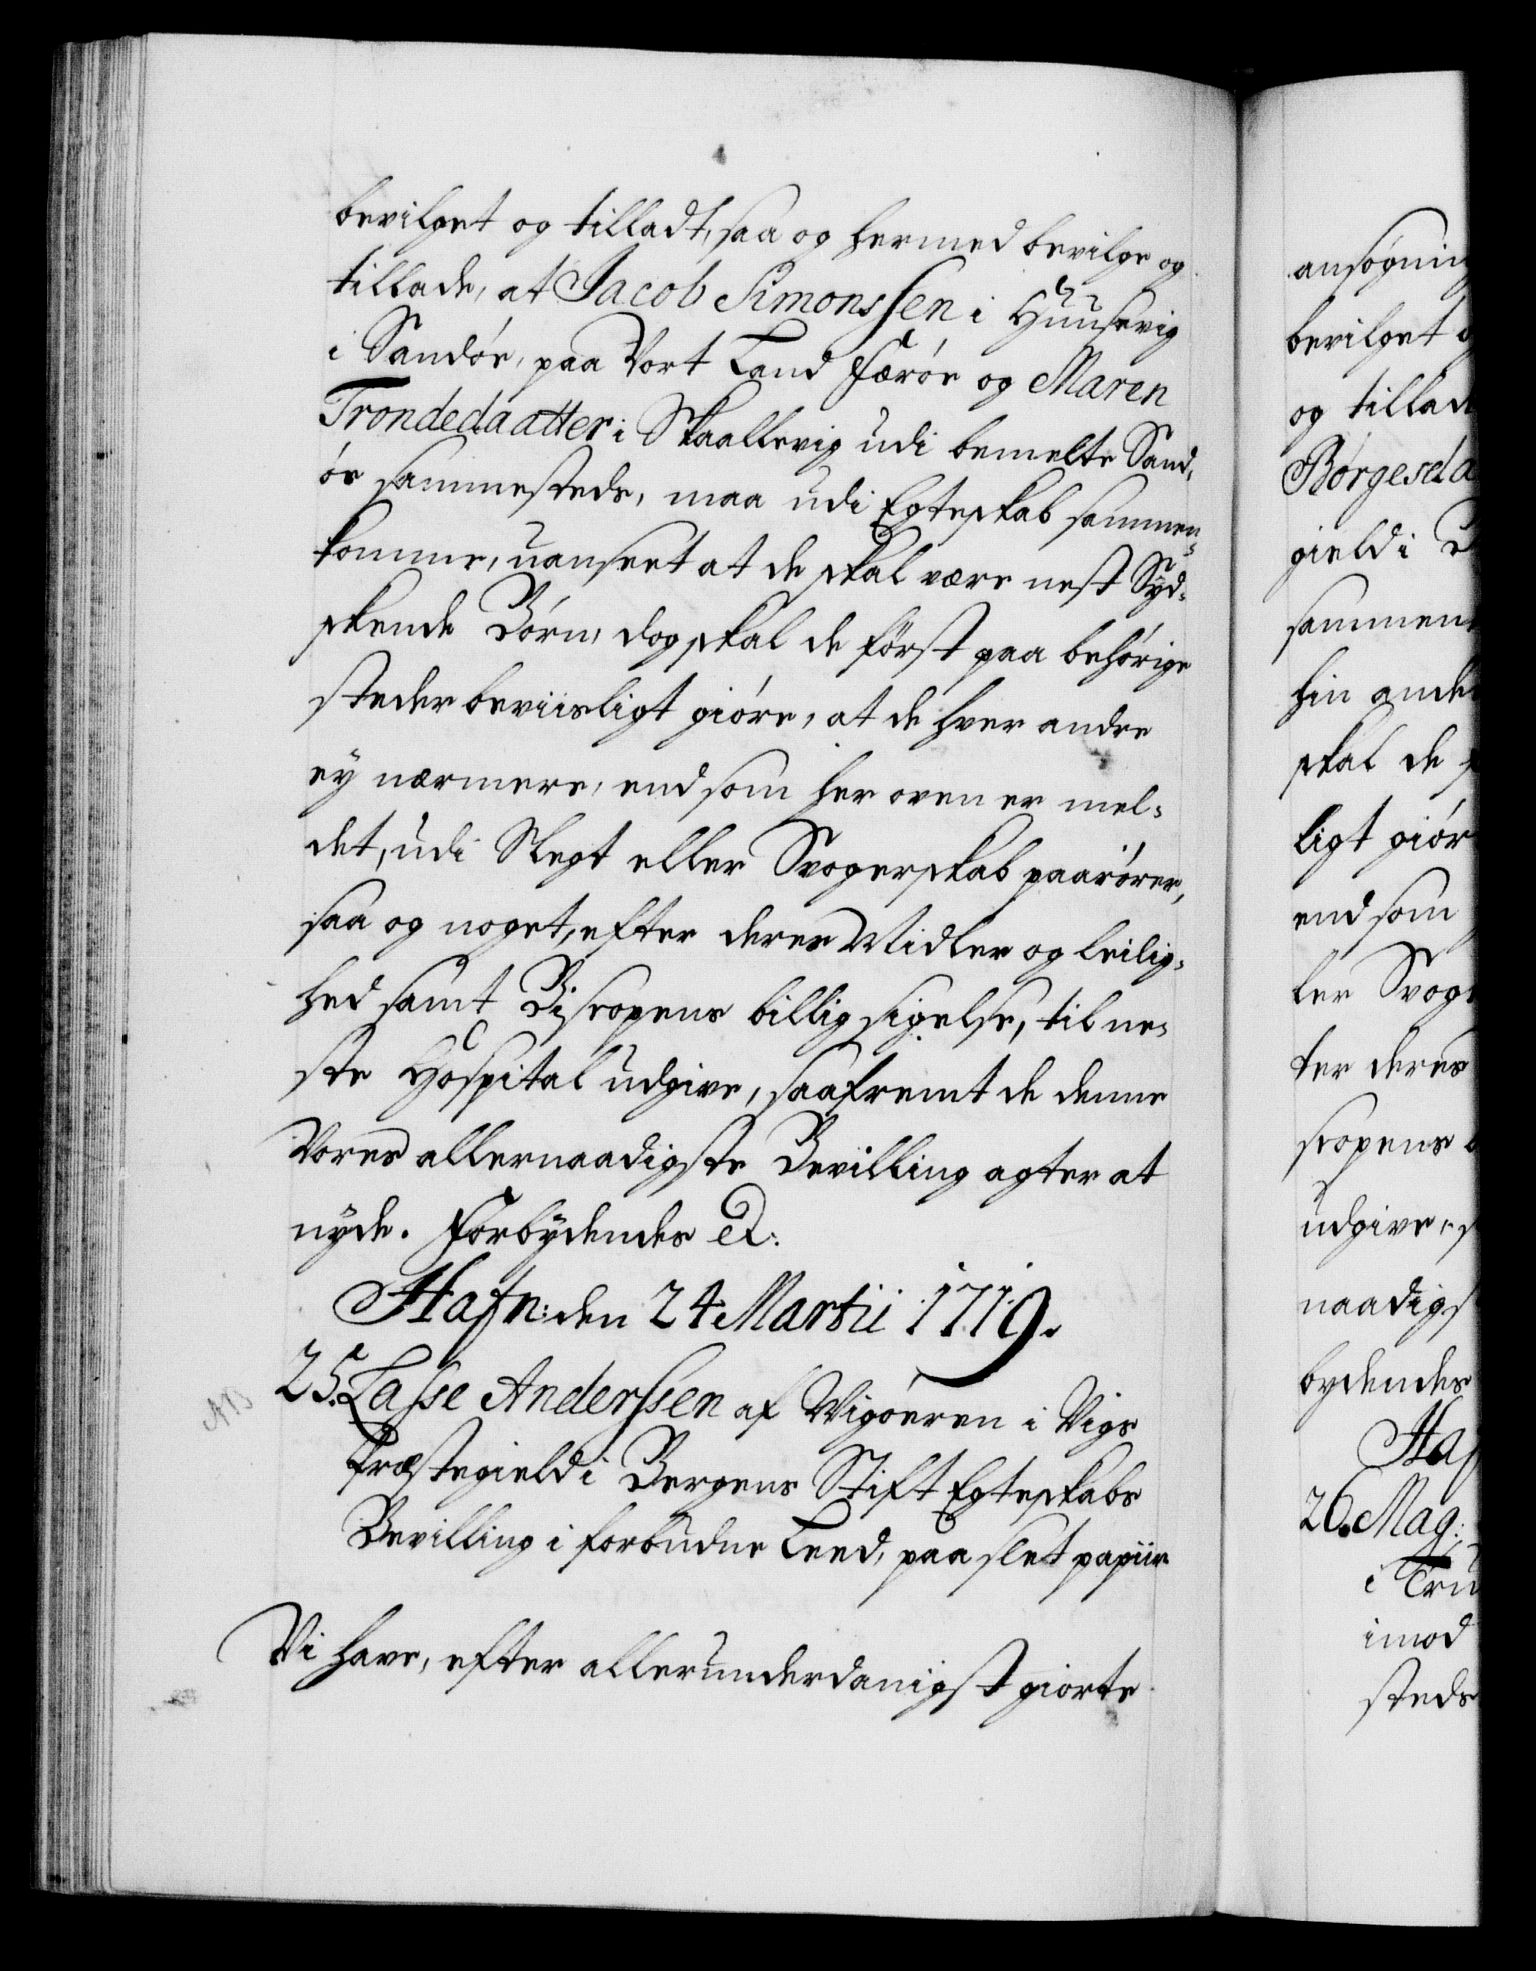 bevilget og tilladt, saa og hermed bevilge og
tillade, at Jacob Simonssen i Huusevig
i Sandöe, paa Vort Land Færöe og Maren
Trondedaatter i Skaallevig udi bemelte Sand,
öe sammesteds, maa udi Egteskab sammen-
komme, uanseet at de skal være nest Syd-
skende Börn, dog skal de först paa behörige
steder beviisligt giöre, at de hver andre
ey nærmere, end som her oven er mel-
det, udi Slegt eller Svogerskab paarörer,
saa og noget, efter deres Midler og leilig-
hed samt Biscopens billig sigelse, til ne-
ste Hospital udgive, saafremt de denne
Vores allernaadigste Bevilling agter at
nyde. Forbydendes &:
Hafn: den 24 Martii 1719.
NB 25. Lasse Anderssen af Vigöeren i Vigs
Præstegield i Bergens Stift Egteskabs
Bevilling i forbudne Leed, paa slet papiir
Vi have, efter allerunderdanigst giorte
ansøgning
bevilget
og tillad
Børgesda
gield i
sammen
hin ande
skal de
ligt giör
end som
ler Svog
ter deres
scopens
udgive, s
naadigs
bydendes
Haf
26. Mag:
i Tru
imod
steds